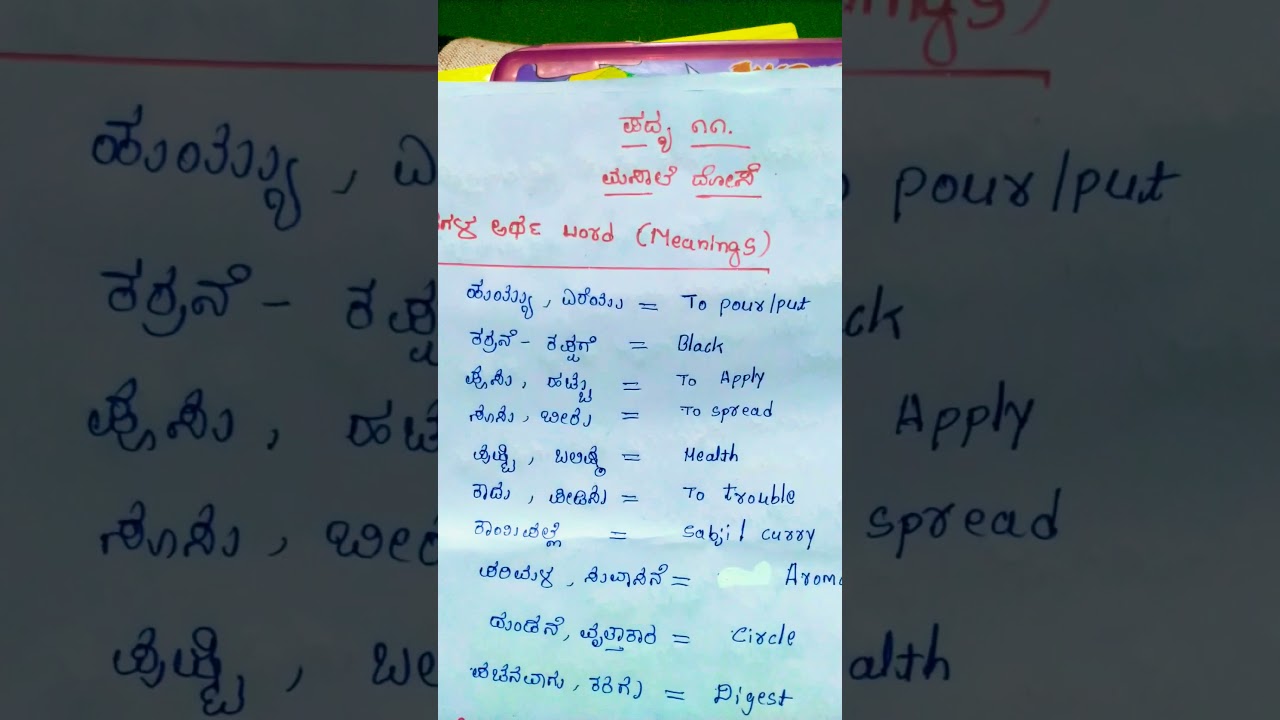 ಪದ್ಯ ೧೧.
ಮಸಾಲೆ ದೋಸೆ
ಗಳ ಅರ್ಥ ಬರಹ (Meanings)
ಹುಯ್ಯು, ಎರೆಯು = To pour/put
ಕರ್ರನೆ - ಕಪ್ಪಗೆ = Black
ಪೂಸು, ಹಚ್ಚು = To Apply
ಸೂಸು, ಬೀರು = To spread
ಪುಷ್ಟಿ, ಬಲಿಷ್ಠ = Health
ಕಾಡು, ಪೀಡಿಸು = To trouble
ಕಾಯಿಪಲ್ಲೆ = Sabji / curry
ಪರಿಮಳ, ಸುವಾಸನೆ = Aroma
ದುಂಡನೆ, ವೃತ್ತಾಕಾರ = Circle
ಪಚನವಾಗು, ಕರಗು = Digest